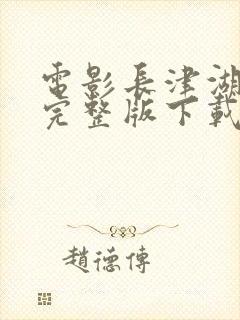 電影長津湖
完整版下載
趙德傳